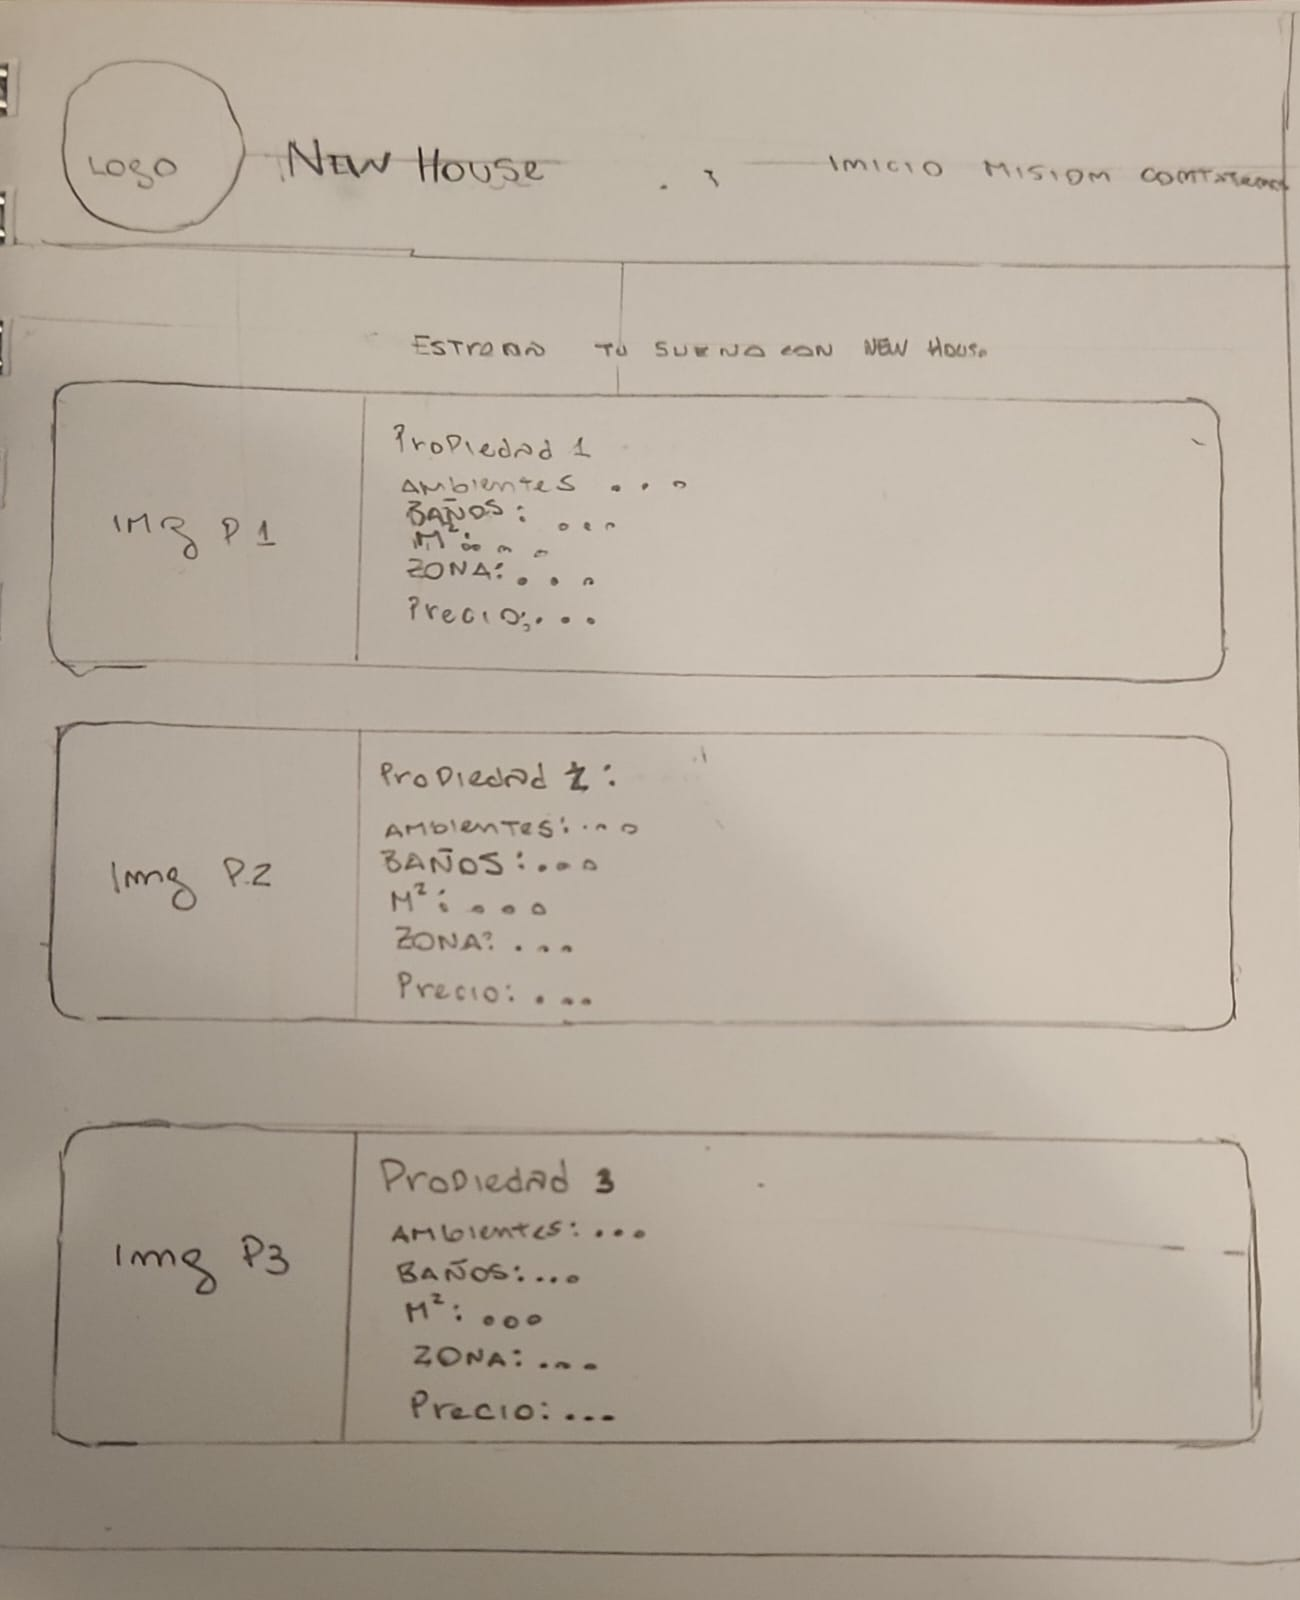 LOGO
NEW HOUSE
IMICIO MISIOM
TU SUENO CON NEW HOUSE
IMG P1
Propiedad 1
AMbientes ...
BAÑOS: ...
M²: ...
ZONA: ...
Precio: ...
Img P.2
Propiedad 2:
AMbientes: ...
BAÑOS: ...
M²: ...
ZONA: ...
Precio: ...
Img P3
Propiedad 3
AMbientes: ...
BAÑOS: ...
M²: ...
ZONA: ...
Precio: ...